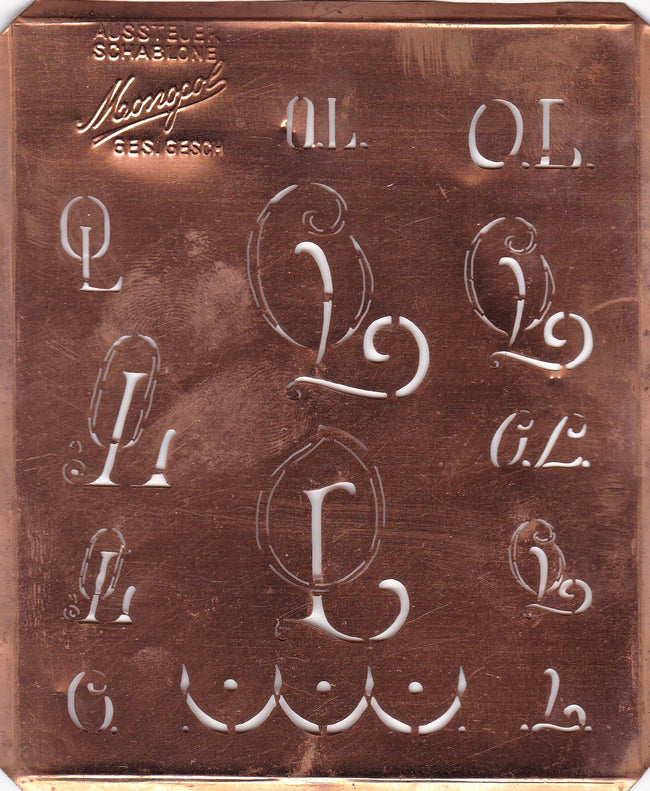 AUSSTEUER
SCHABLONE
Monopol
GES. GESCH
O.L.
O.L.
OL
OL
OL
OL
O.L.
OL
OL
OL
O.
L.